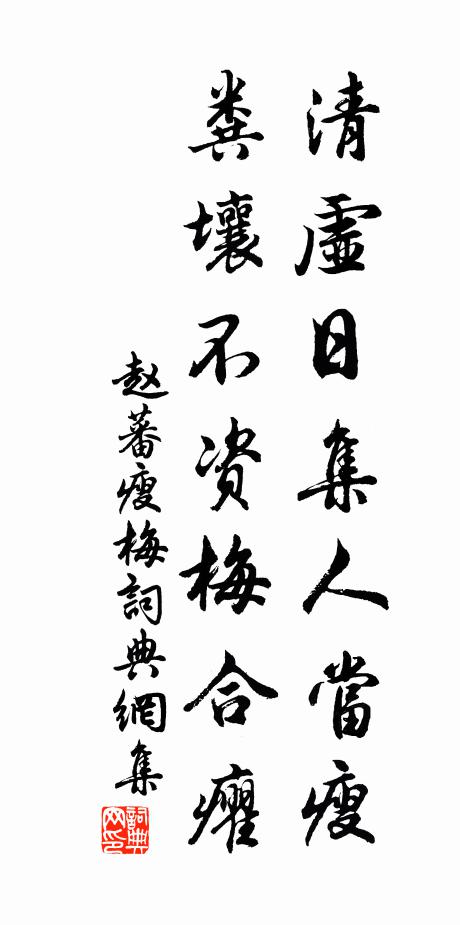 清虛日集人當瘦
糞壤不资梅合癯
赵蕃瘦梅詞典網集
詞典网印